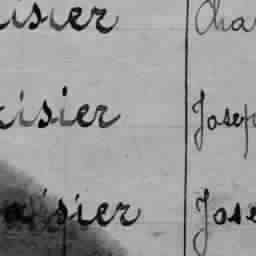 isier Cha
isier Josep
aisier Jose